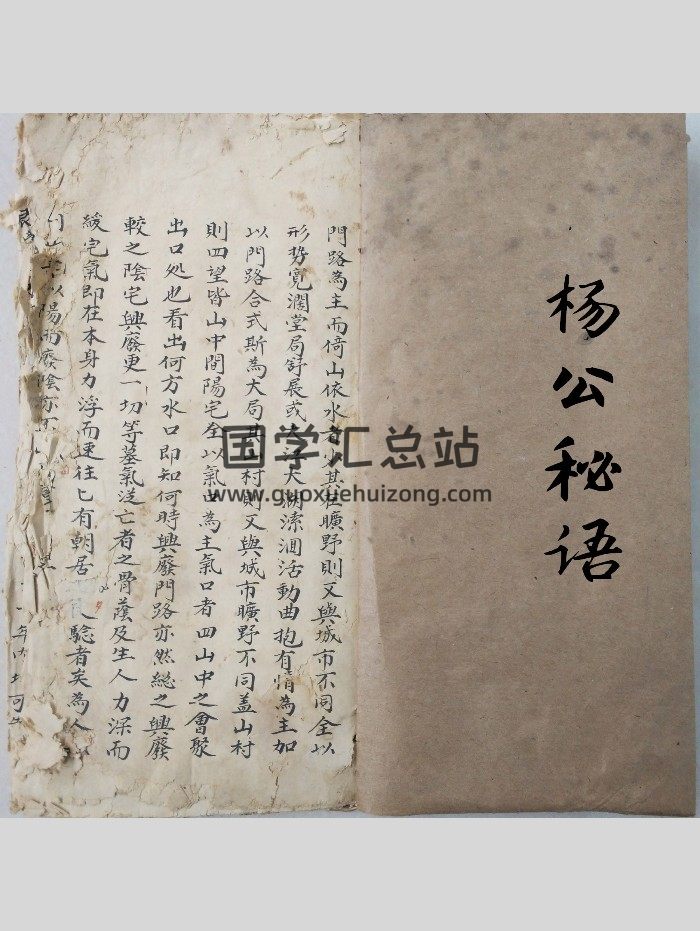 杨公秘语
門路為主而倚山依水者少其在曠野則又與城市不同全以
形势寬濶堂局舒展或大湖濴洄活動曲抱有情為主加
以門路合式斯為大局其山村則又與城市曠野不同盖山村
則四望皆山中間陽宅全以氣口為主氣口者四山中之會聚
出口処也看出何方水口即知何時興廢門路亦然総之興廢
較之陰宅興廢更一切等墓氣送亡者之骨蔭及生人力深而
緩宅氣即在本身力浮而速往匕有朝居驗者矣為人
以陽而廢陰亦不
国学汇总站
www.guoxuehuizong.com